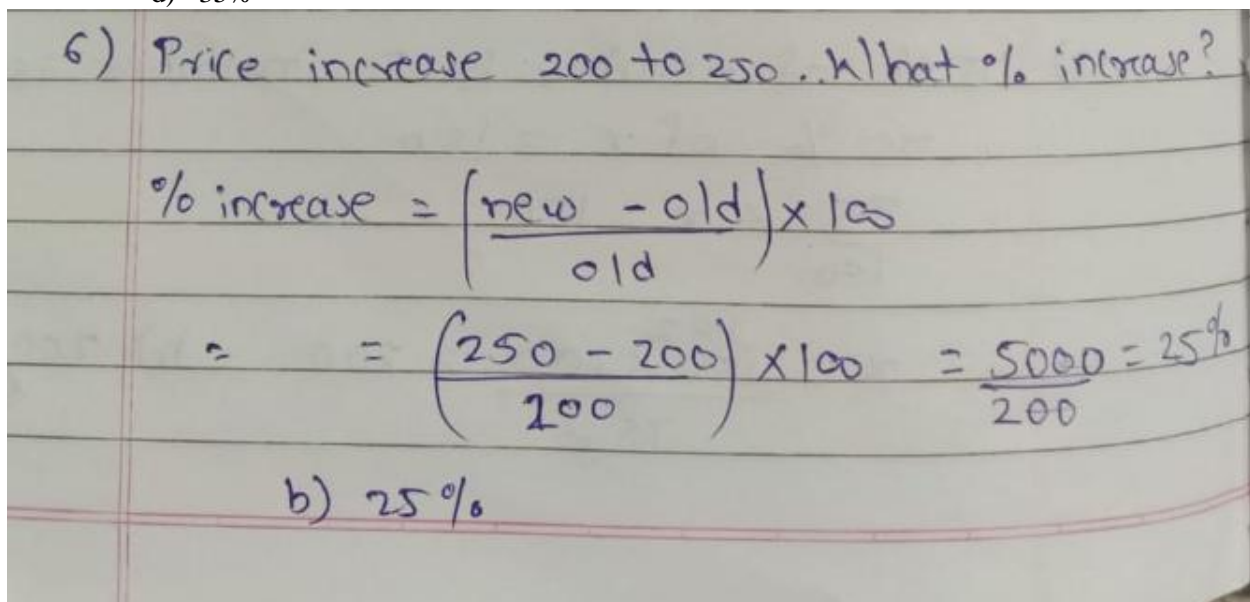 d) 35%
6) Price increase 200 to 250. What % increase?
% increase = (new - old / old) × 100
= = (250 - 200 / 200) × 100 = 5000 / 200 = 25%
b) 25%